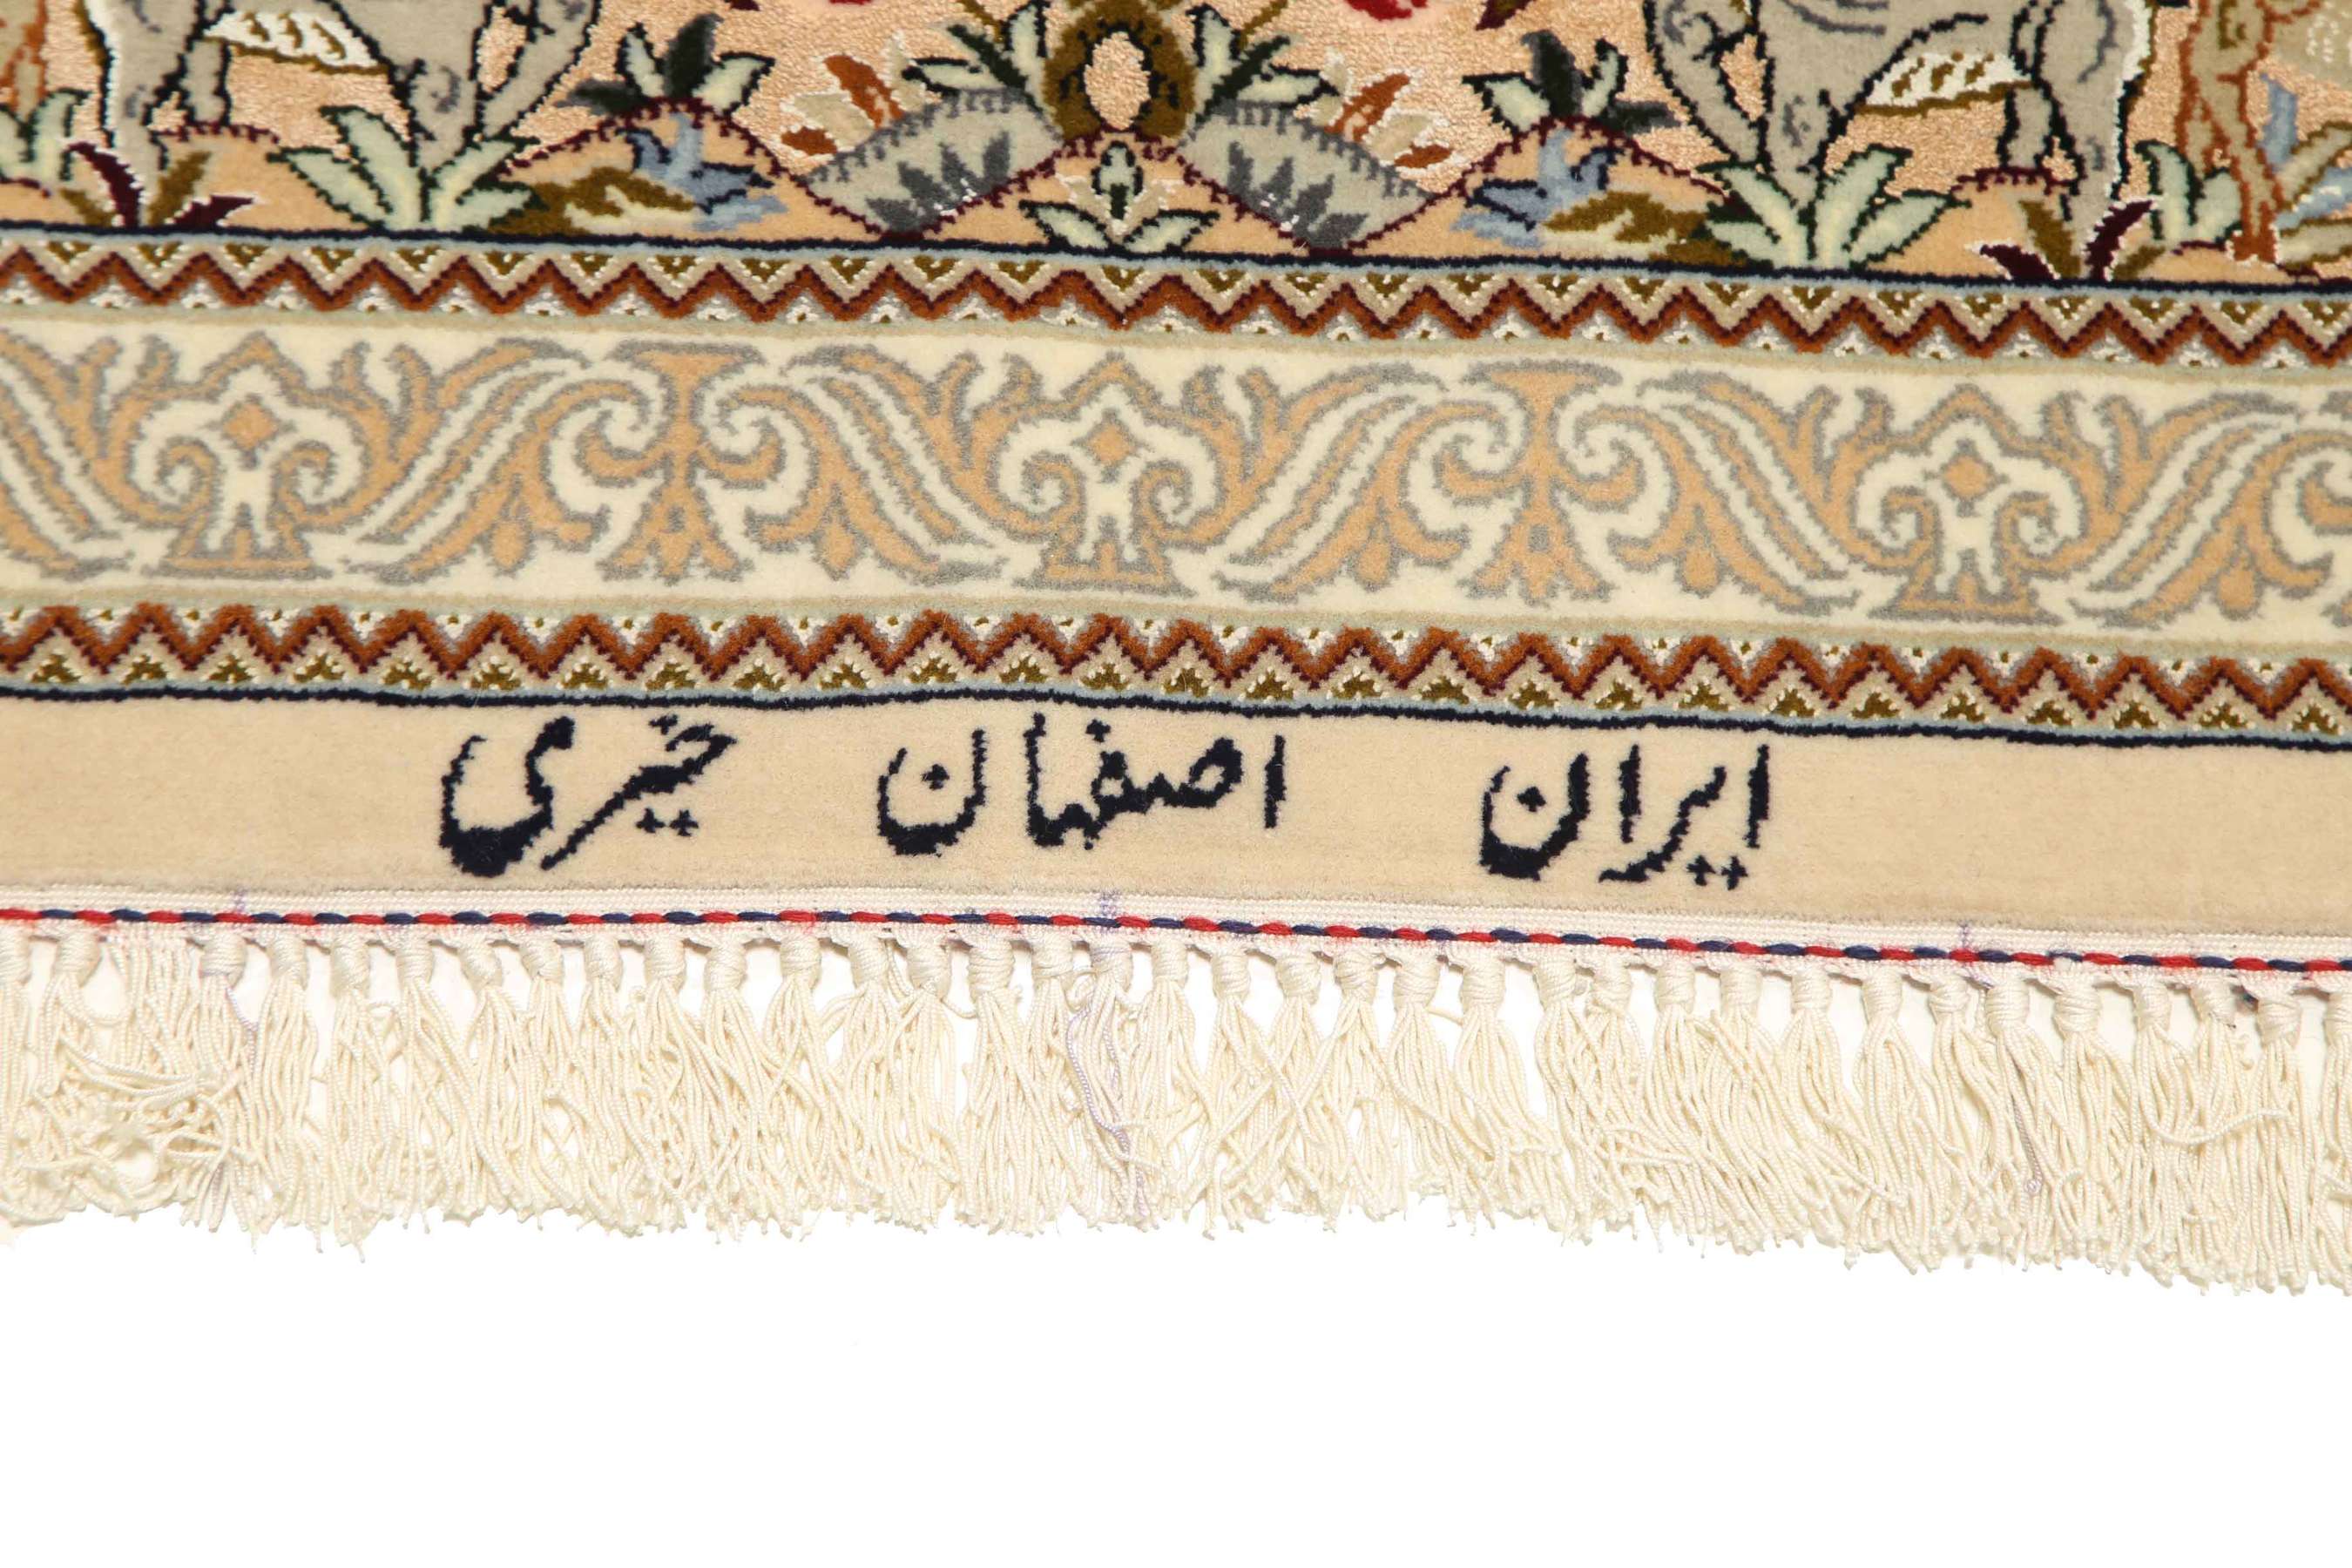 ایران اصفهان خیرمی